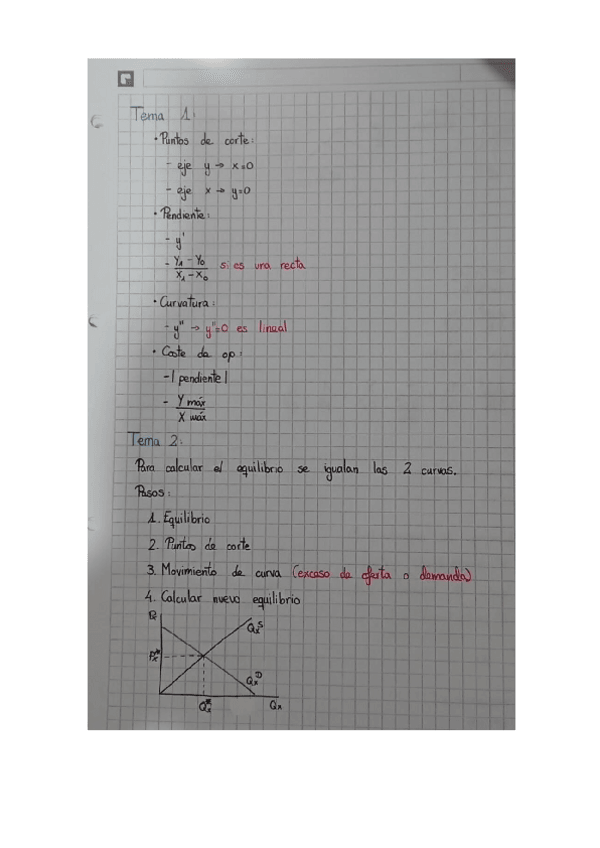 Tema 1:
• Puntos de corte:
- eje y → x=0
- eje x → y=0
• Pendiente:
- y'
- Y₁ - Y₀ / X₁ - X₀ si es una recta
• Curvatura:
- y'' → y''=0 es lineal
• Coste de op:
- | pendiente |
- Y máx / X máx
Tema 2:
Para calcular el equilibrio se igualan las 2 curvas.
Pasos:
1. Equilibrio
2. Puntos de corte
3. Movimiento de curva (exceso de oferta o demanda)
4. Calcular nuevo equilibrio
Qxˢ
Px*
Qxᴰ
Qx* Qx